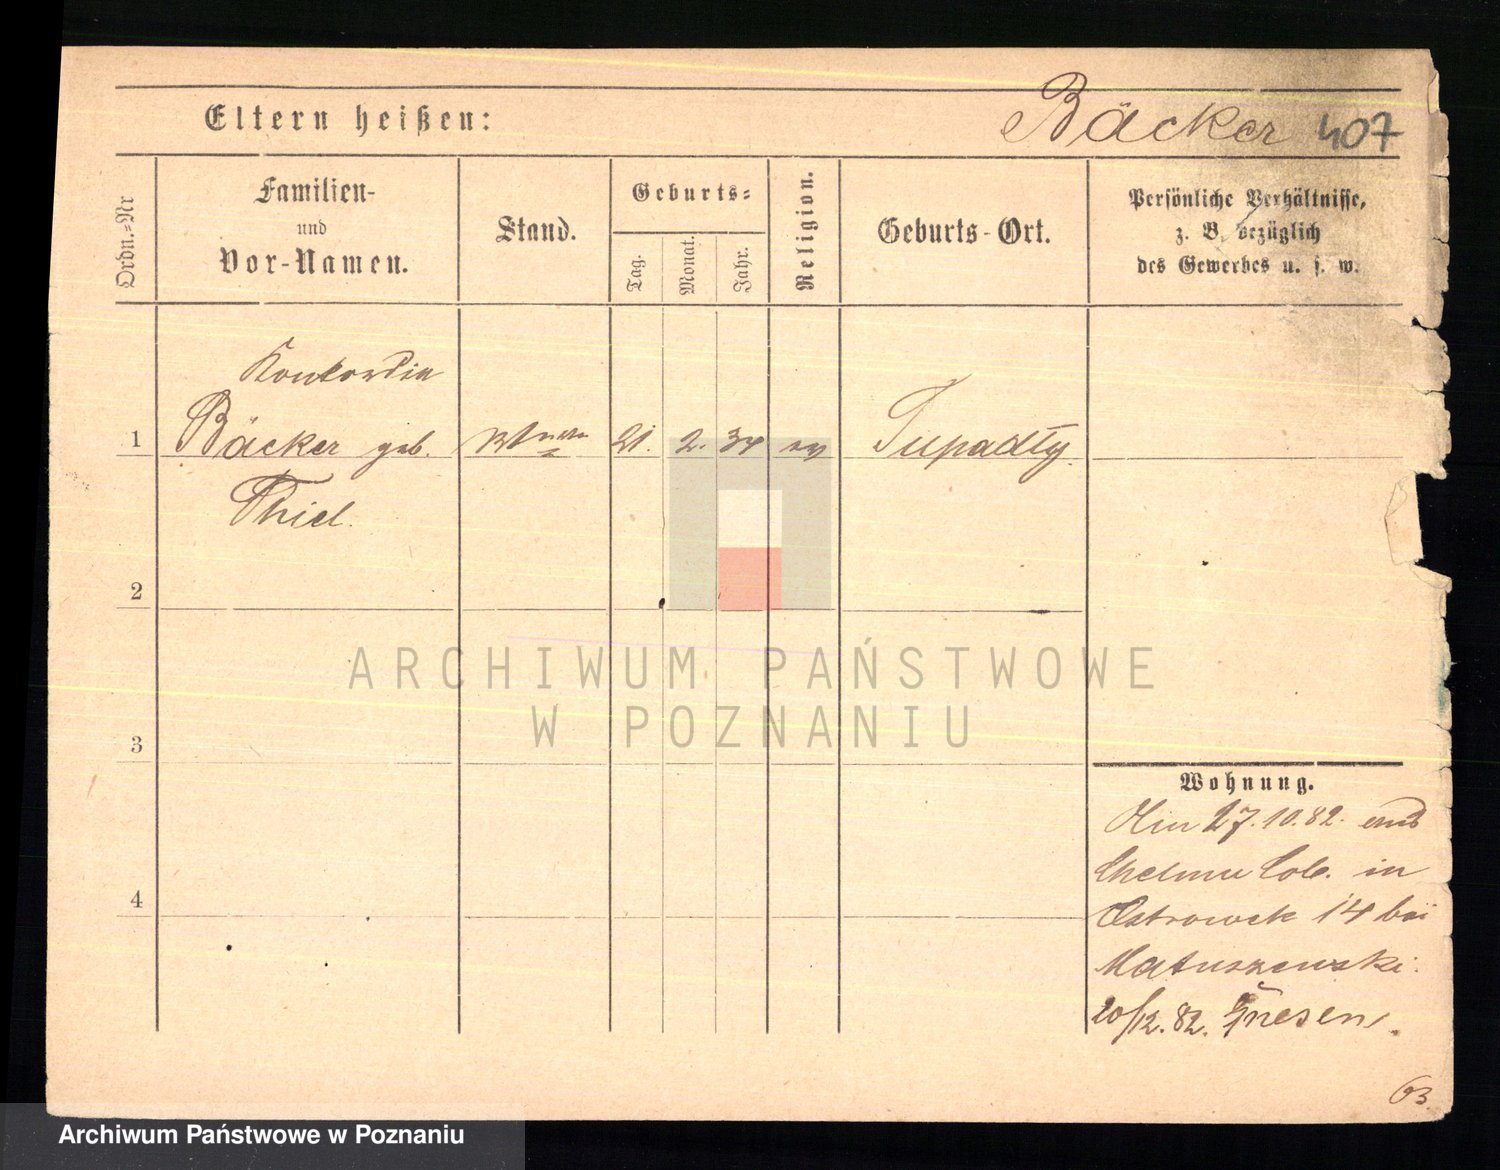 Eltern heißen:
Bäcker 407
Ordn.-Nr
Familien-
und
Vor-Namen.
Stand.
Geburts-
Tag.
Monat.
Jahr.
Religion.
Geburts-Ort.
Persönliche Verhältnisse,
z. B. bezüglich
des Gewerbes u. s. w.
Konkordia
1 Bäcker geb. 21. 2. 34 ev Tupadły.
Thiel.
2
3
4
ARCHIWUM PAŃSTWOWE
W POZNANIU
Wohnung.
27.10.82. aus
in
Ostrowek 14 bei
Matuszewski.
20/12. 82. Gnesen.
63
Archiwum Państwowe w Poznaniu